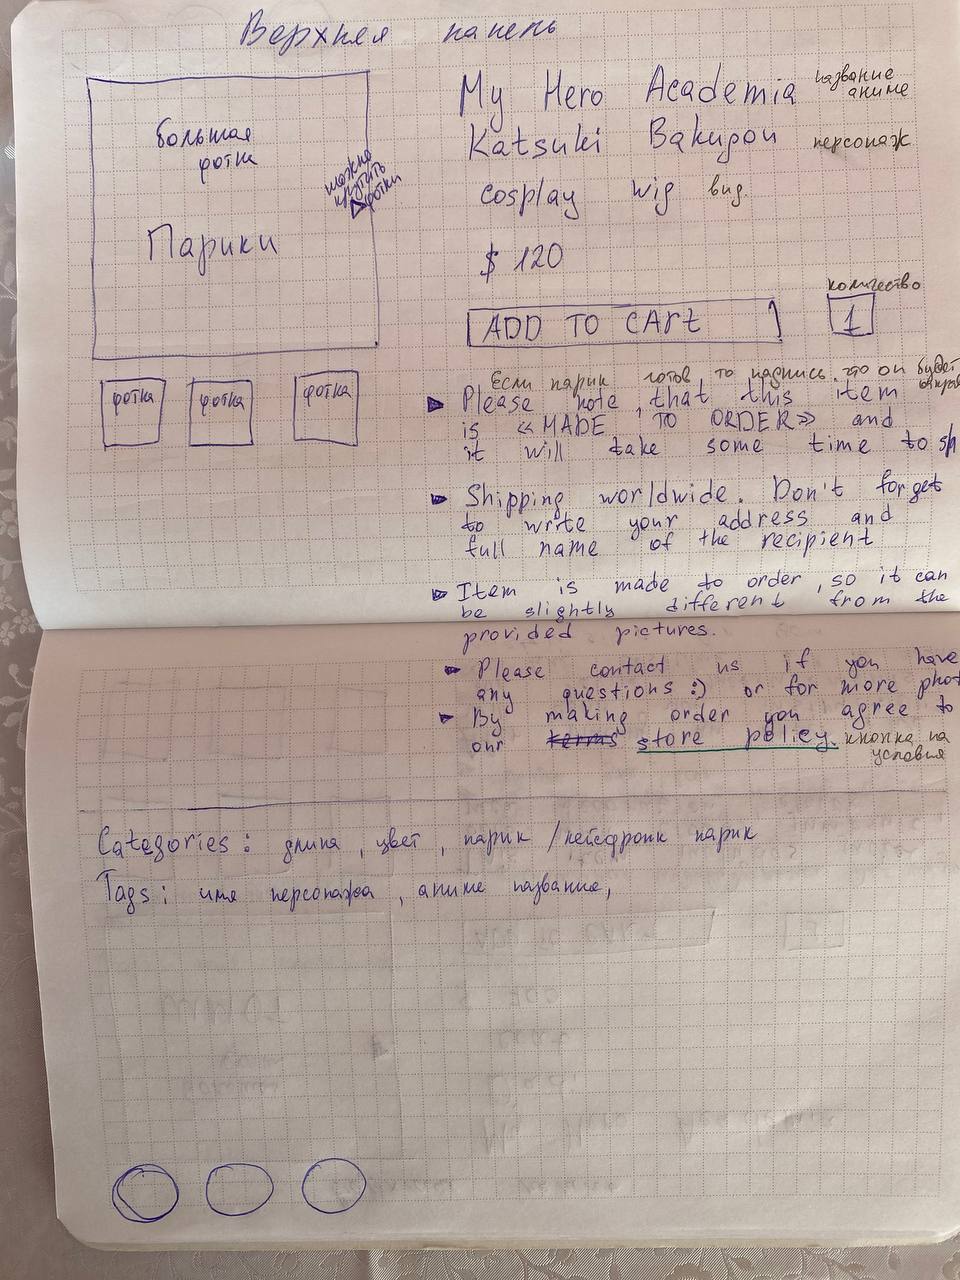 Верхняя панель
большая
фотка
можно
крутить
фотки
Парики
фотка
фотка
фотка
My Hero Academia название
аниме
Katsuki Bakugou персонаж
cosplay wig вид.
$ 120
количество
ADD TO CArt 1
Если парик готов то надпись что он будет
Please note, that this item
is «MADE TO ORDER» and
it will take some time to sh
Shipping worldwide. Don't forget
to write your address and
full name of the recipient
Item is made to order, so it can
be slightly different from the
provided pictures.
Please contact us if you have
any questions :) or for more phot
By making order you agree to
our terms store policy. кнопка на
условия
Categories: длина, цвет, парик /лейсфронк парик
Tags: имя персонажа, аниме название,